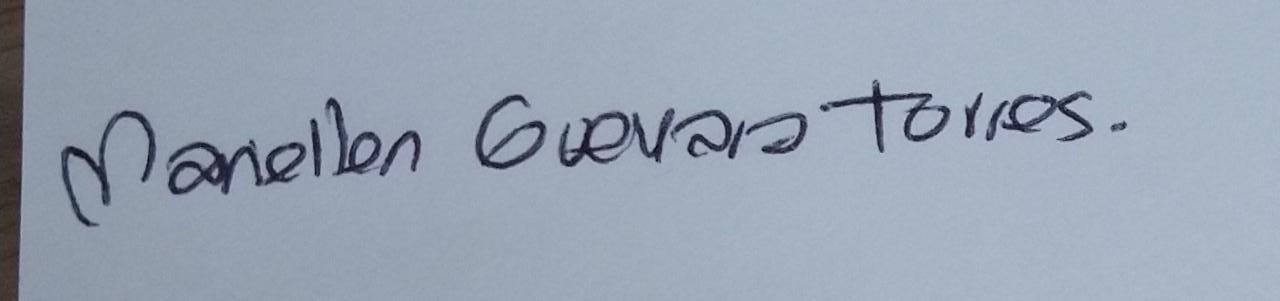 Mariellen Guevara Torres.